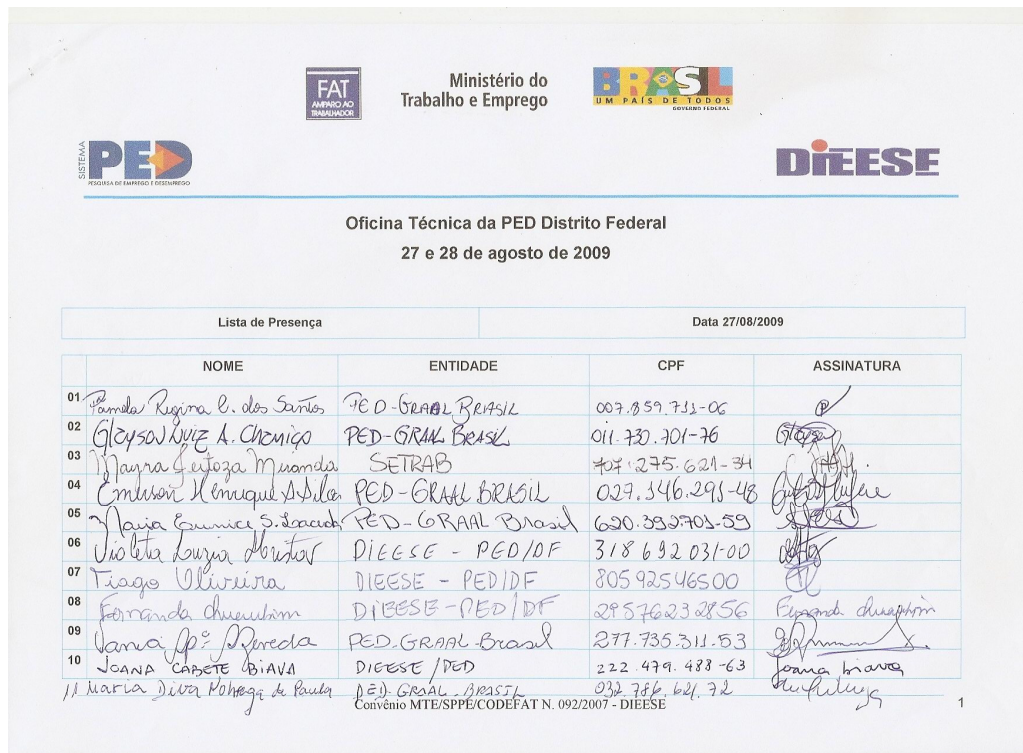 FAT
AMPARO AO
TRABALHADOR
Ministério do
Trabalho e Emprego
BRASIL
UM PAÍS DE TODOS
GOVERNO FEDERAL
SISTEMA
PED
PESQUISA DE EMPREGO E DESEMPREGO
DIEESE
Oficina Técnica da PED Distrito Federal
27 e 28 de agosto de 2009
Lista de Presença Data 27/08/2009
NOME ENTIDADE CPF ASSINATURA
01 Pamela Regina C. dos Santos PED-GRAAL BRASIL 007.859.711-06
02 PED-GRAAL BRASIL 011.730.701-76
03 Mayra Miranda SETRAB 707.275.621-34
04 Emerson Henrique PED-GRAAL BRASIL 027.146.291-48
05 Maria Eunice S. PED-GRAAL Brasil 620.392.701-59
06 Violeta Luzia DIEESE - PED/DF 318692031-00
07 Tiago Oliveira DIEESE - PED/DF 80592546500
08 Fernanda DIEESE-PED/DF 29576232856 Fernanda
09 Ap.ª PED-GRAAL-Brasil 277.735.311.53
10 JOANA CABETE BIAVA DIEESE/PED 222.479.488-63 Joana Biava
11 Maria Diva Nobrega de Paula PED-GRAAL-BRASIL 032.786.621.72
Convênio MTE/SPPE/CODEFAT N. 092/2007 - DIEESE 1